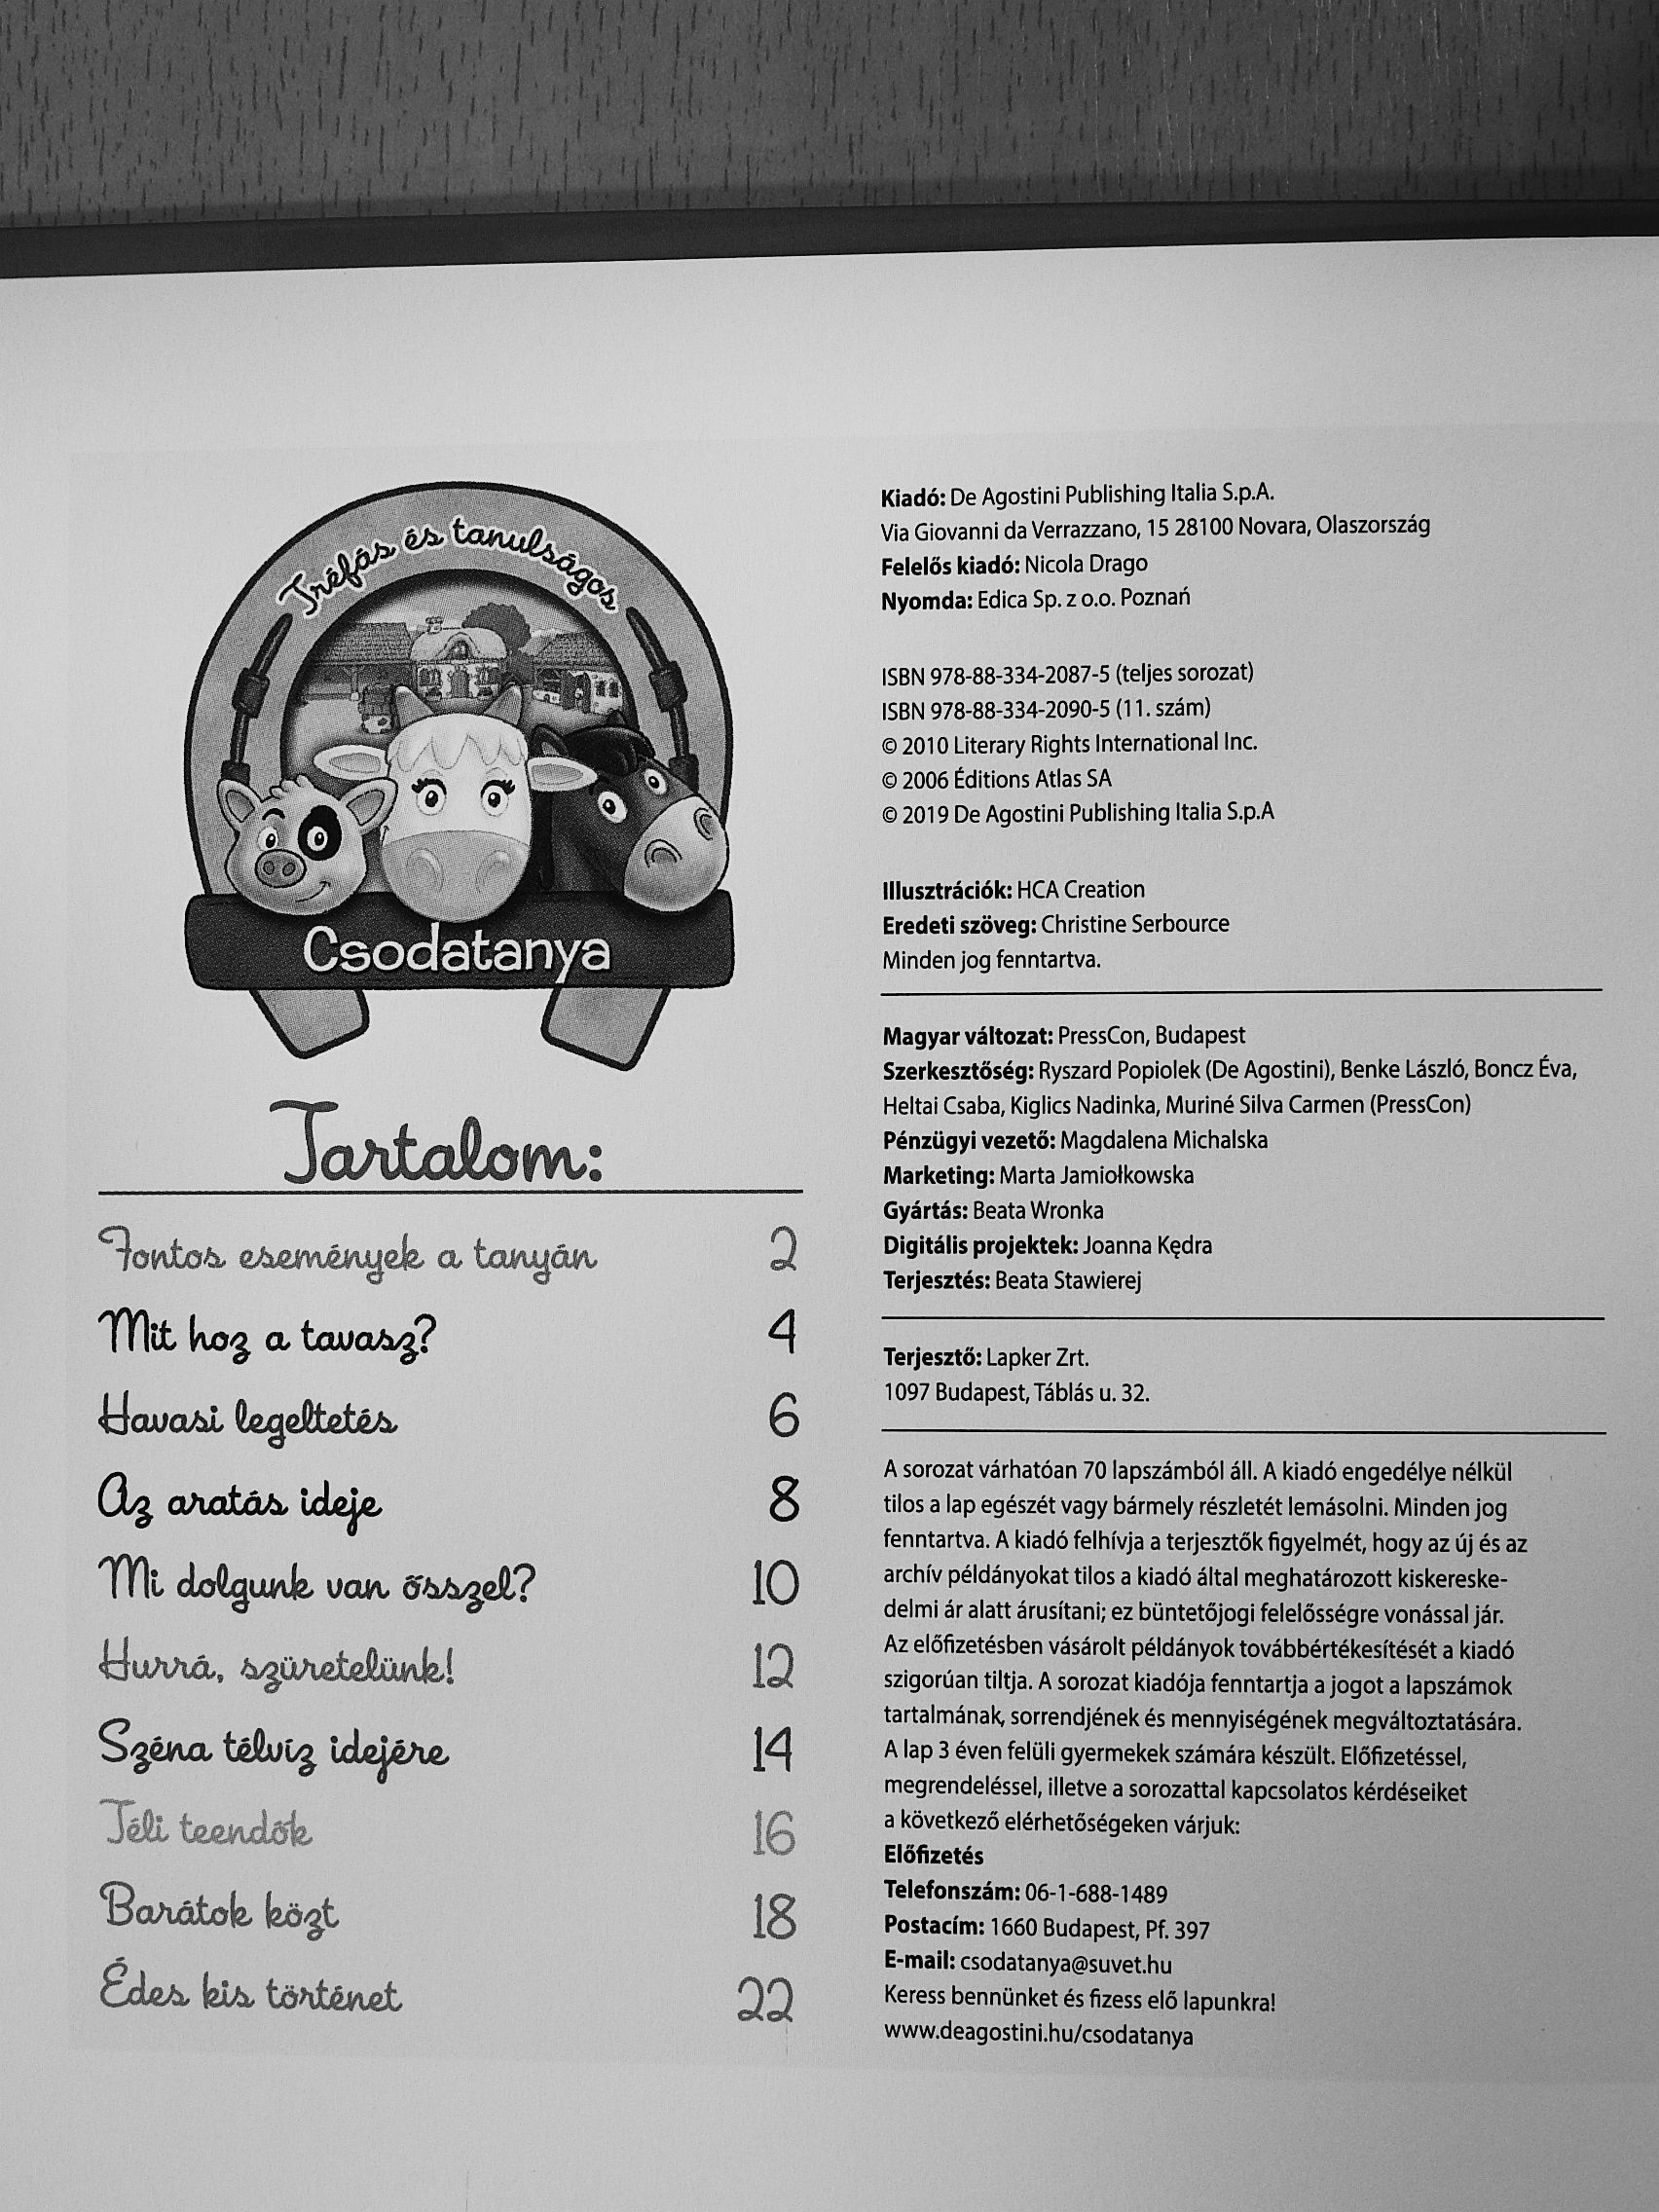 Tréfás és tanulságos
Csodatanya
Tartalom:
Fontos események a tanyán 2
Mit hoz a tavasz? 4
Havasi legeltetés 6
Az aratás ideje 8
Mi dolgunk van ősszel? 10
Hurrá, szüretelünk! 12
Széna télvíz idejére 14
Téli teendők 16
Barátok közt 18
Édes kis történet 22
Kiadó: De Agostini Publishing Italia S.p.A.
Via Giovanni da Verrazzano, 15 28100 Novara, Olaszország
Felelős kiadó: Nicola Drago
Nyomda: Edica Sp. z o.o. Poznań
ISBN 978-88-334-2087-5 (teljes sorozat)
ISBN 978-88-334-2090-5 (11. szám)
© 2010 Literary Rights International Inc.
© 2006 Éditions Atlas SA
© 2019 De Agostini Publishing Italia S.p.A
Illusztrációk: HCA Creation
Eredeti szöveg: Christine Serbource
Minden jog fenntartva.
Magyar változat: PressCon, Budapest
Szerkesztőség: Ryszard Popiolek (De Agostini), Benke László, Boncz Éva,
Heltai Csaba, Kiglics Nadinka, Muriné Silva Carmen (PressCon)
Pénzügyi vezető: Magdalena Michalska
Marketing: Marta Jamiołkowska
Gyártás: Beata Wronka
Digitális projektek: Joanna Kędra
Terjesztés: Beata Stawierej
Terjesztő: Lapker Zrt.
1097 Budapest, Táblás u. 32.
A sorozat várhatóan 70 lapszámból áll. A kiadó engedélye nélkül
tilos a lap egészét vagy bármely részletét lemásolni. Minden jog
fenntartva. A kiadó felhívja a terjesztők figyelmét, hogy az új és az
archív példányokat tilos a kiadó által meghatározott kiskereske-
delmi ár alatt árusítani; ez büntetőjogi felelősségre vonással jár.
Az előfizetésben vásárolt példányok továbbértékesítését a kiadó
szigorúan tiltja. A sorozat kiadója fenntartja a jogot a lapszámok
tartalmának, sorrendjének és mennyiségének megváltoztatására.
A lap 3 éven felüli gyermekek számára készült. Előfizetéssel,
megrendeléssel, illetve a sorozattal kapcsolatos kérdéseiket
a következő elérhetőségeken várjuk:
Előfizetés
Telefonszám: 06-1-688-1489
Postacím: 1660 Budapest, Pf. 397
E-mail: csodatanya@suvet.hu
Keress bennünket és fizess elő lapunkra!
www.deagostini.hu/csodatanya